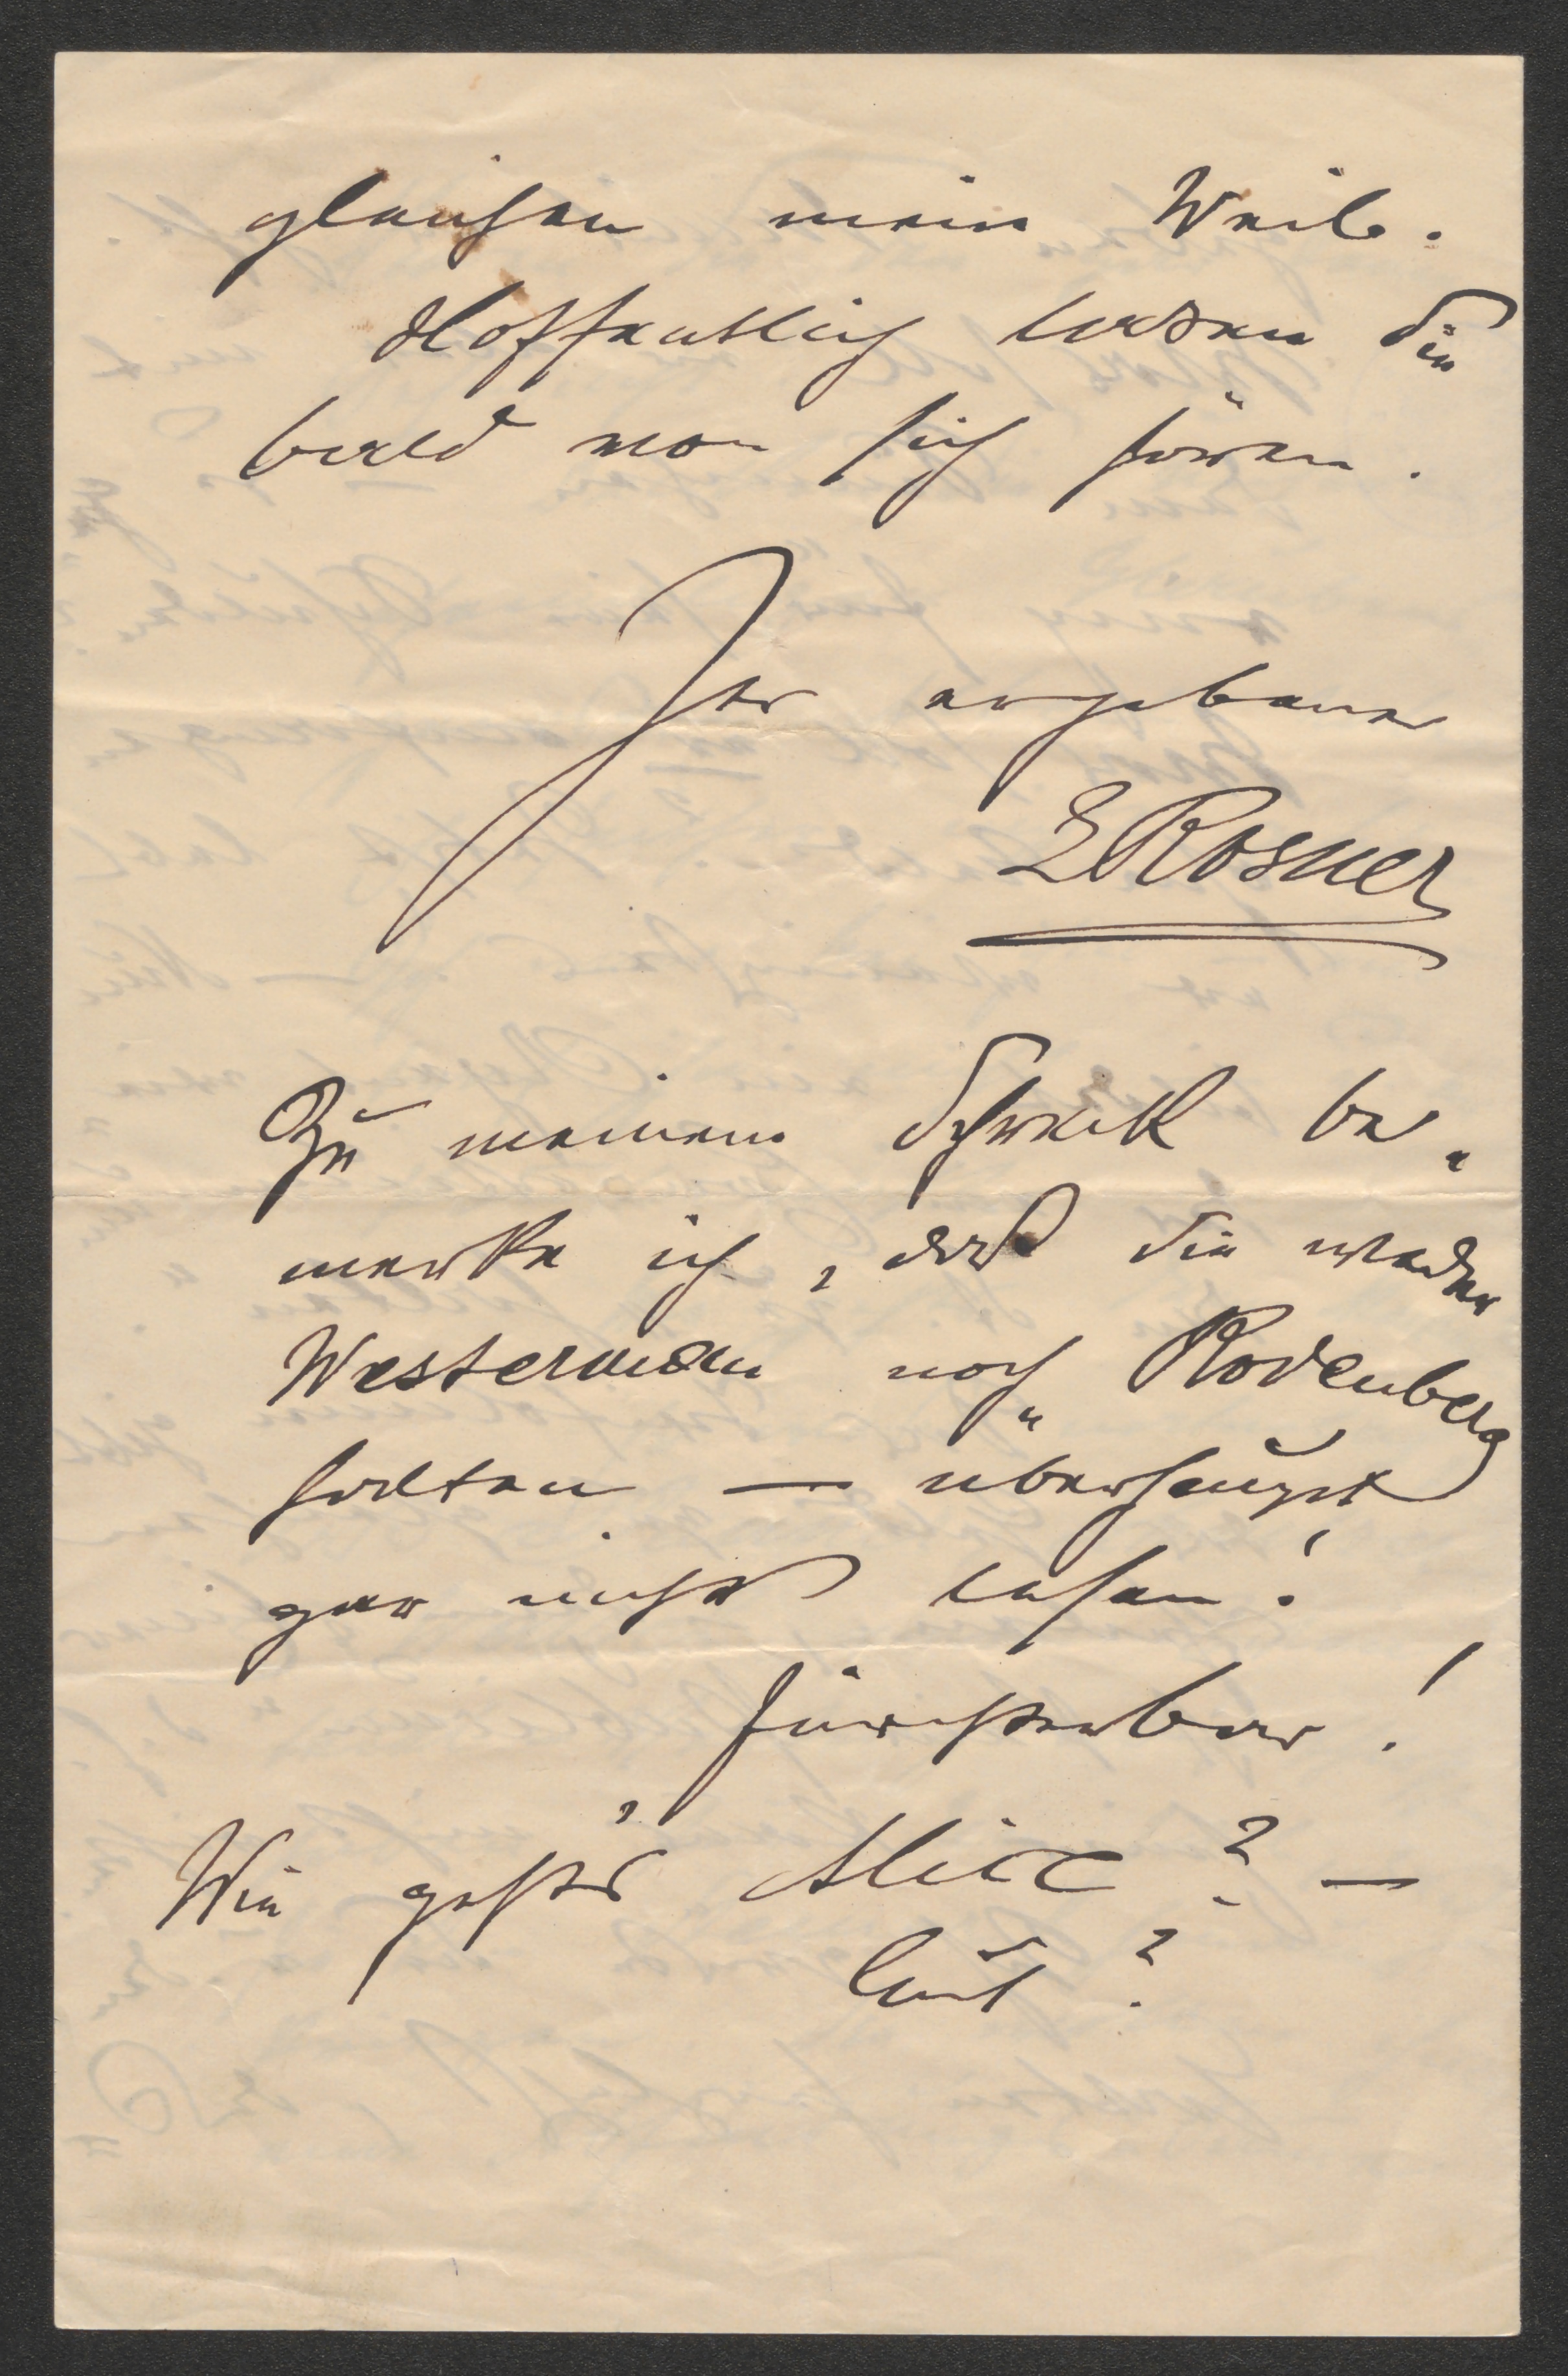 gleichen mein Weib.
Hoffentlich lassen Sie
bald von sich hören.
Ihr ergebener
L Rosner
Zu meinem Schreck be„
merke ich, daß Sie weder
Westermann noch Rodenberg
halten — überhaupt
gar nichts lesen!
Furchtbar!
Wie geht's Alice? —
Gut?